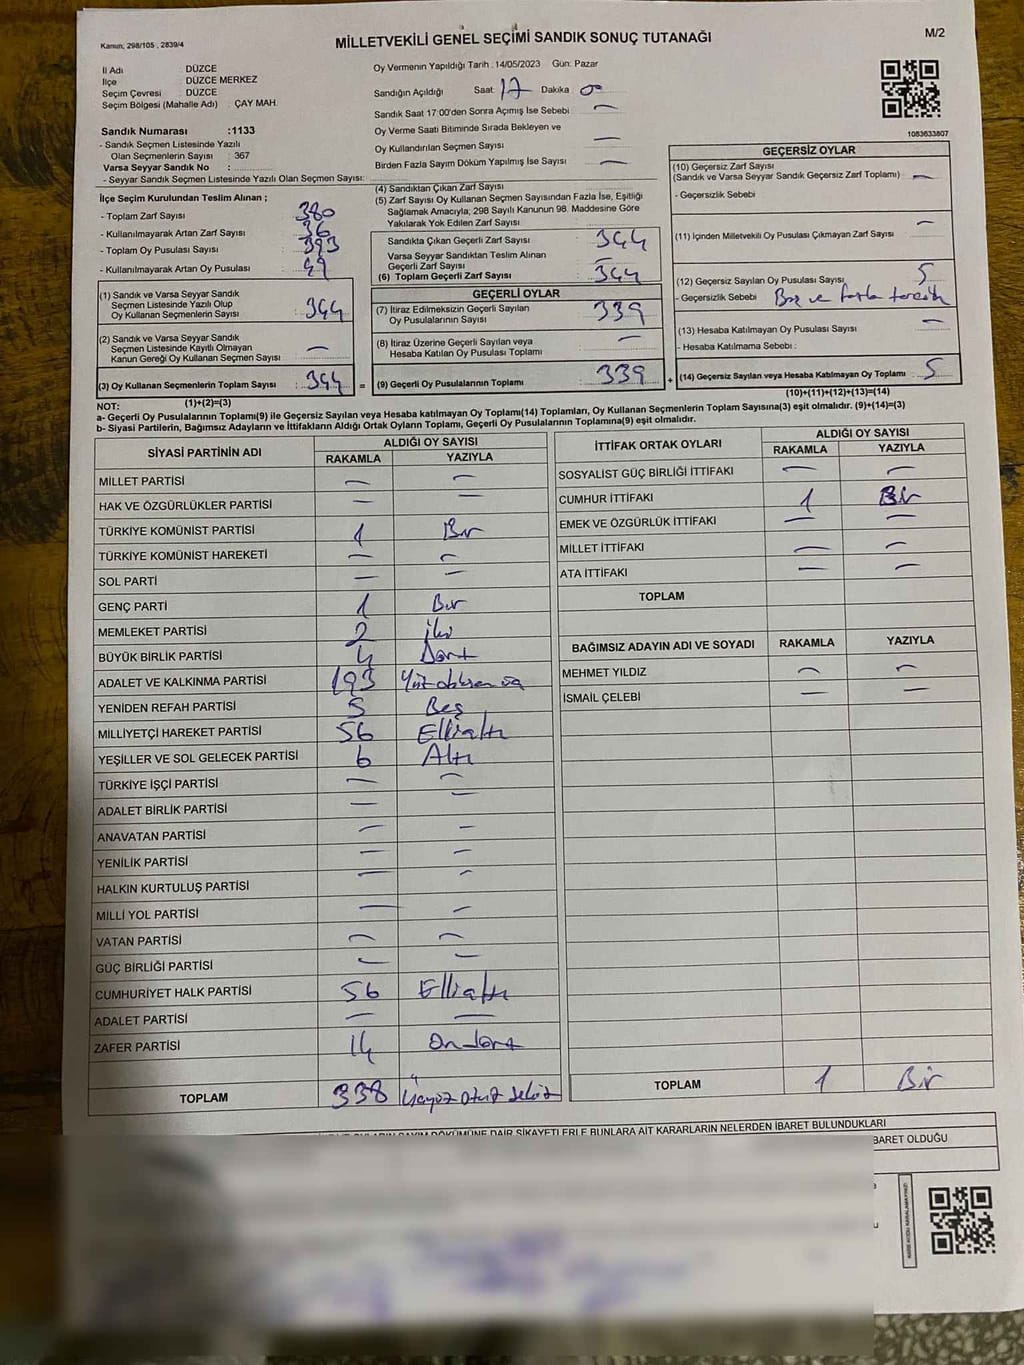 Kanun; 298/105 , 2839/4
MİLLETVEKİLİ GENEL SEÇİMİ SANDIK SONUÇ TUTANAĞI
M/2
İl Adı DÜZCE
İlçe DÜZCE MERKEZ
Seçim Çevresi DÜZCE
Seçim Bölgesi (Mahalle Adı) : ÇAY MAH.
Sandık Numarası :1133
- Sandık Seçmen Listesinde Yazılı
Olan Seçmenlerin Sayısı : 367
Varsa Seyyar Sandık No :
- Seyyar Sandık Seçmen Listesinde Yazılı Olan Seçmen Sayısı:
Oy Vermenin Yapıldığı Tarih : 14/05/2023 Gün: Pazar
Sandığın Açıldığı Saat 17 Dakika 00
Sandık Saat 17:00'den Sonra Açımış İse Sebebi —
Oy Verme Saati Bitiminde Sırada Bekleyen ve
Oy Kullandırılan Seçmen Sayısı —
Birden Fazla Sayım Döküm Yapılmış İse Sayısı —
1083633807
İlçe Seçim Kurulundan Teslim Alınan ;
- Toplam Zarf Sayısı : 380
- Kullanılmayarak Artan Zarf Sayısı : 36
- Toplam Oy Pusulası Sayısı : 393
- Kullanılmayarak Artan Oy Pusulası : 49
(1) Sandık ve Varsa Seyyar Sandık
Seçmen Listesinde Yazılı Olup
Oy Kullanan Seçmenlerin Sayısı : 344
(2) Sandık ve Varsa Seyyar Sandık
Seçmen Listesinde Kayıtlı Olmayan
Kanun Gereği Oy Kullanan Seçmen Sayısı : —
(3) Oy Kullanan Seçmenlerin Toplam Sayısı : 344 =
(1)+(2)=(3)
(4) Sandıktan Çıkan Zarf Sayısı
(5) Zarf Sayısı Oy Kullanan Seçmen Sayısından Fazla İse, Eşitliği
Sağlamak Amacıyla; 298 Sayılı Kanunun 98. Maddesine Göre
Yakılarak Yok Edilen Zarf Sayısı :
Sandıkta Çıkan Geçerli Zarf Sayısı : 344
Varsa Seyyar Sandıktan Teslim Alınan
Geçerli Zarf Sayısı
(6) Toplam Geçerli Zarf Sayısı : 344
GEÇERLİ OYLAR
(7) İtiraz Edilmeksizin Geçerli Sayılan
Oy Pusulalarının Sayısı : 339
(8) İtiraz Üzerine Geçerli Sayılan veya
Hesaba Katılan Oy Pusulası Toplamı : —
(9) Geçerli Oy Pusulalarının Toplamı : 339 +
GEÇERSİZ OYLAR
(10) Geçersiz Zarf Sayısı
(Sandık ve Varsa Seyyar Sandık Geçersiz Zarf Toplamı) —
- Geçersizlik Sebebi
(11) İçinden Milletvekili Oy Pusulası Çıkmayan Zarf Sayısı —
(12) Geçersiz Sayılan Oy Pusulası Sayısı 5
- Geçersizlik Sebebi Boş ve fazla tercih
(13) Hesaba Katılmayan Oy Pusulası Sayısı —
- Hesaba Katılmama Sebebi :
(14) Geçersiz Sayılan veya Hesaba Katılmayan Oy Toplamı : 5
(10)+(11)+(12)+(13)=(14)
NOT:
a- Geçerli Oy Pusulalarının Toplamı(9) ile Geçersiz Sayılan veya Hesaba katılmayan Oy Toplamı(14) Toplamları, Oy Kullanan Seçmenlerin Toplam Sayısına(3) eşit olmalıdır. (9)+(14)=(3)
b- Siyasi Partilerin, Bağımsız Adayların ve İttifakların Aldığı Ortak Oyların Toplamı, Geçerli Oy Pusulalarının Toplamına(9) eşit olmalıdır.
SİYASİ PARTİNİN ADI ALDIĞI OY SAYISI
RAKAMLA YAZIYLA
MİLLET PARTİSİ — —
HAK VE ÖZGÜRLÜKLER PARTİSİ — —
TÜRKİYE KOMÜNİST PARTİSİ 1 Bir
TÜRKİYE KOMÜNİST HAREKETİ — —
SOL PARTİ — —
GENÇ PARTİ 1 Bir
MEMLEKET PARTİSİ 2 İki
BÜYÜK BİRLİK PARTİSİ 4 Dört
ADALET VE KALKINMA PARTİSİ 193 Yüz doksan üç
YENİDEN REFAH PARTİSİ 5 Beş
MİLLİYETÇİ HAREKET PARTİSİ 56 Ellialtı
YEŞİLLER VE SOL GELECEK PARTİSİ 6 Altı
TÜRKİYE İŞÇİ PARTİSİ — —
ADALET BİRLİK PARTİSİ — —
ANAVATAN PARTİSİ — —
YENİLİK PARTİSİ — —
HALKIN KURTULUŞ PARTİSİ — —
MİLLİ YOL PARTİSİ — —
VATAN PARTİSİ — —
GÜÇ BİRLİĞİ PARTİSİ — —
CUMHURİYET HALK PARTİSİ 56 Ellialtı
ADALET PARTİSİ — —
ZAFER PARTİSİ 14 Ondört
TOPLAM 338 Üçyüz otuz sekiz
İTTİFAK ORTAK OYLARI ALDIĞI OY SAYISI
RAKAMLA YAZIYLA
SOSYALİST GÜÇ BİRLİĞİ İTTİFAKI — —
CUMHUR İTTİFAKI 1 Bir
EMEK VE ÖZGÜRLÜK İTTİFAKI — —
MİLLET İTTİFAKI — —
ATA İTTİFAKI — —
TOPLAM
BAĞIMSIZ ADAYIN ADI VE SOYADI RAKAMLA YAZIYLA
MEHMET YILDIZ — —
İSMAİL ÇELEBİ — —
TOPLAM 1 Bir
SAYIM DÖKÜMÜNE DAİR ŞİKAYETLERLE BUNLARA AİT KARARLARIN NELERDEN İBARET BULUNDUKLARI
BARET OLDUĞU